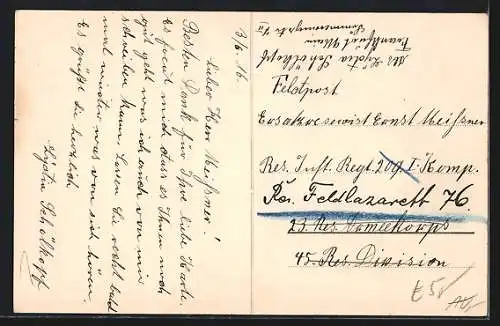 3/6. 16.
Lieber Herr Meißner!
Besten Dank für Ihre liebe Karte.
Es freut mich dass es Ihnen noch
gut geht was ich auch von mir
schreiben kann. Lassen Sie recht bald
mal wieder was von sich hören.
Es grüßt Sie herzlich
Lydia Schöllkopf
Abs. Lydia Schöllkopf
Frankfurt Main
Feldpost
Ersatzreservist Ernst Meißner
Res. Inft. Regt. 209 I. Komp.
Res. Feldlazarett 76
23. Res. Armeekorps
45. Res. Division
£5